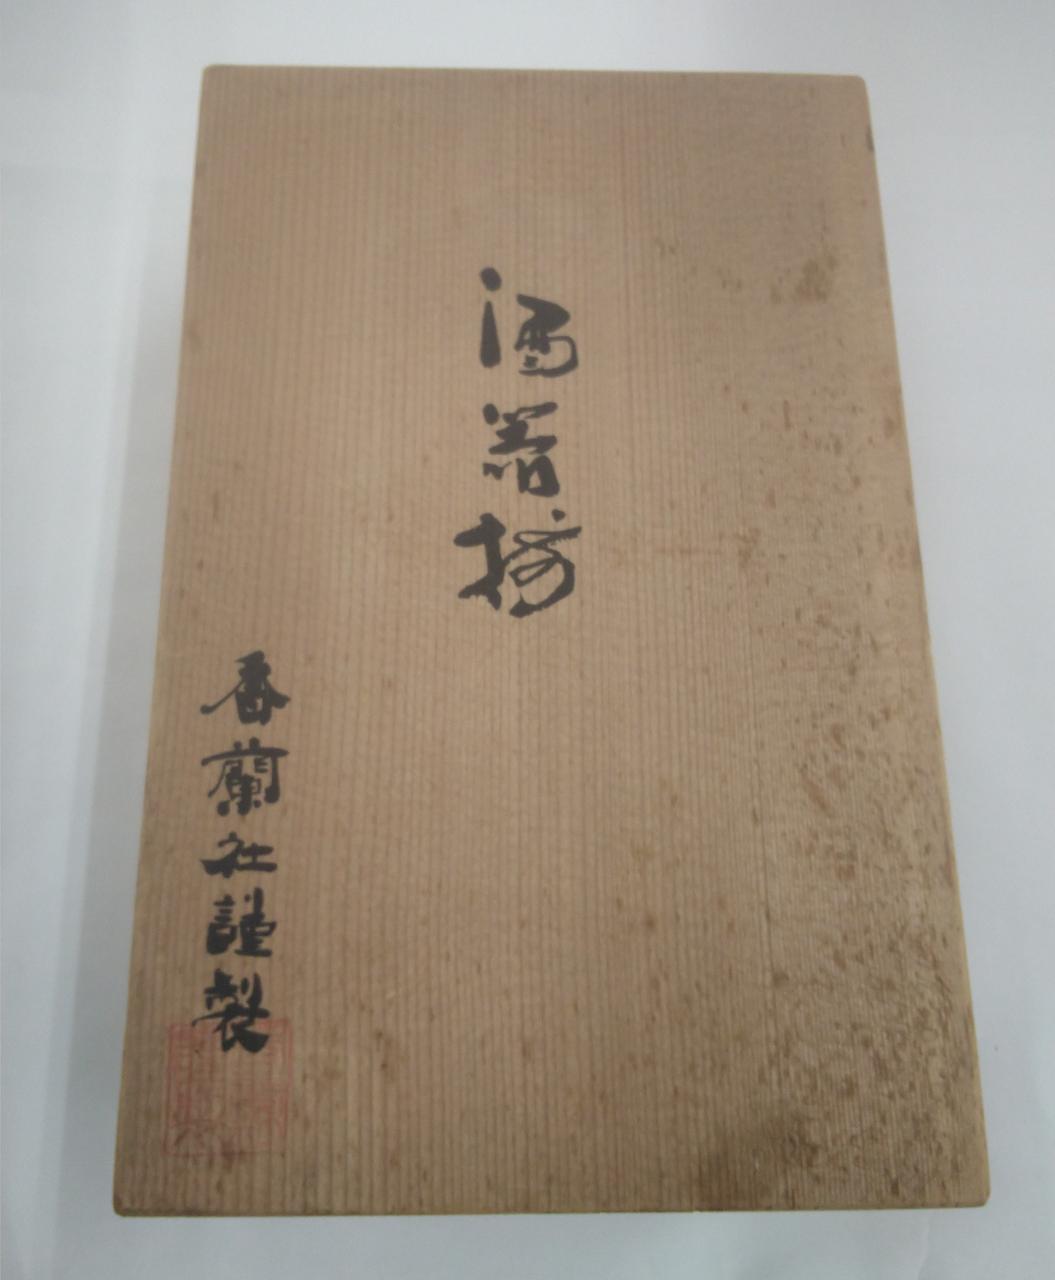 酒器揃
香蘭社謹製